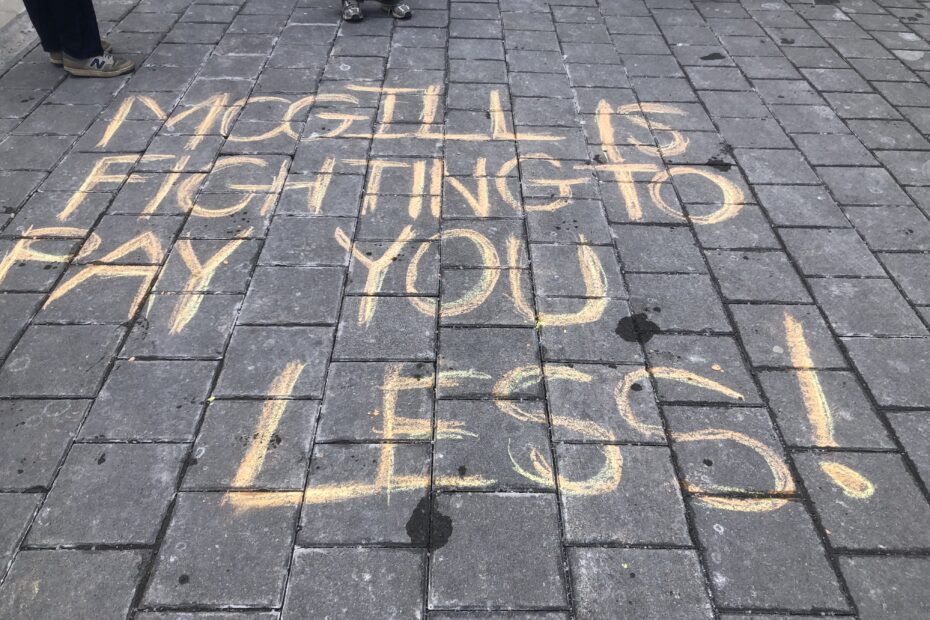 MCGILL IS
FIGHTING TO
PAY YOU
LESS!